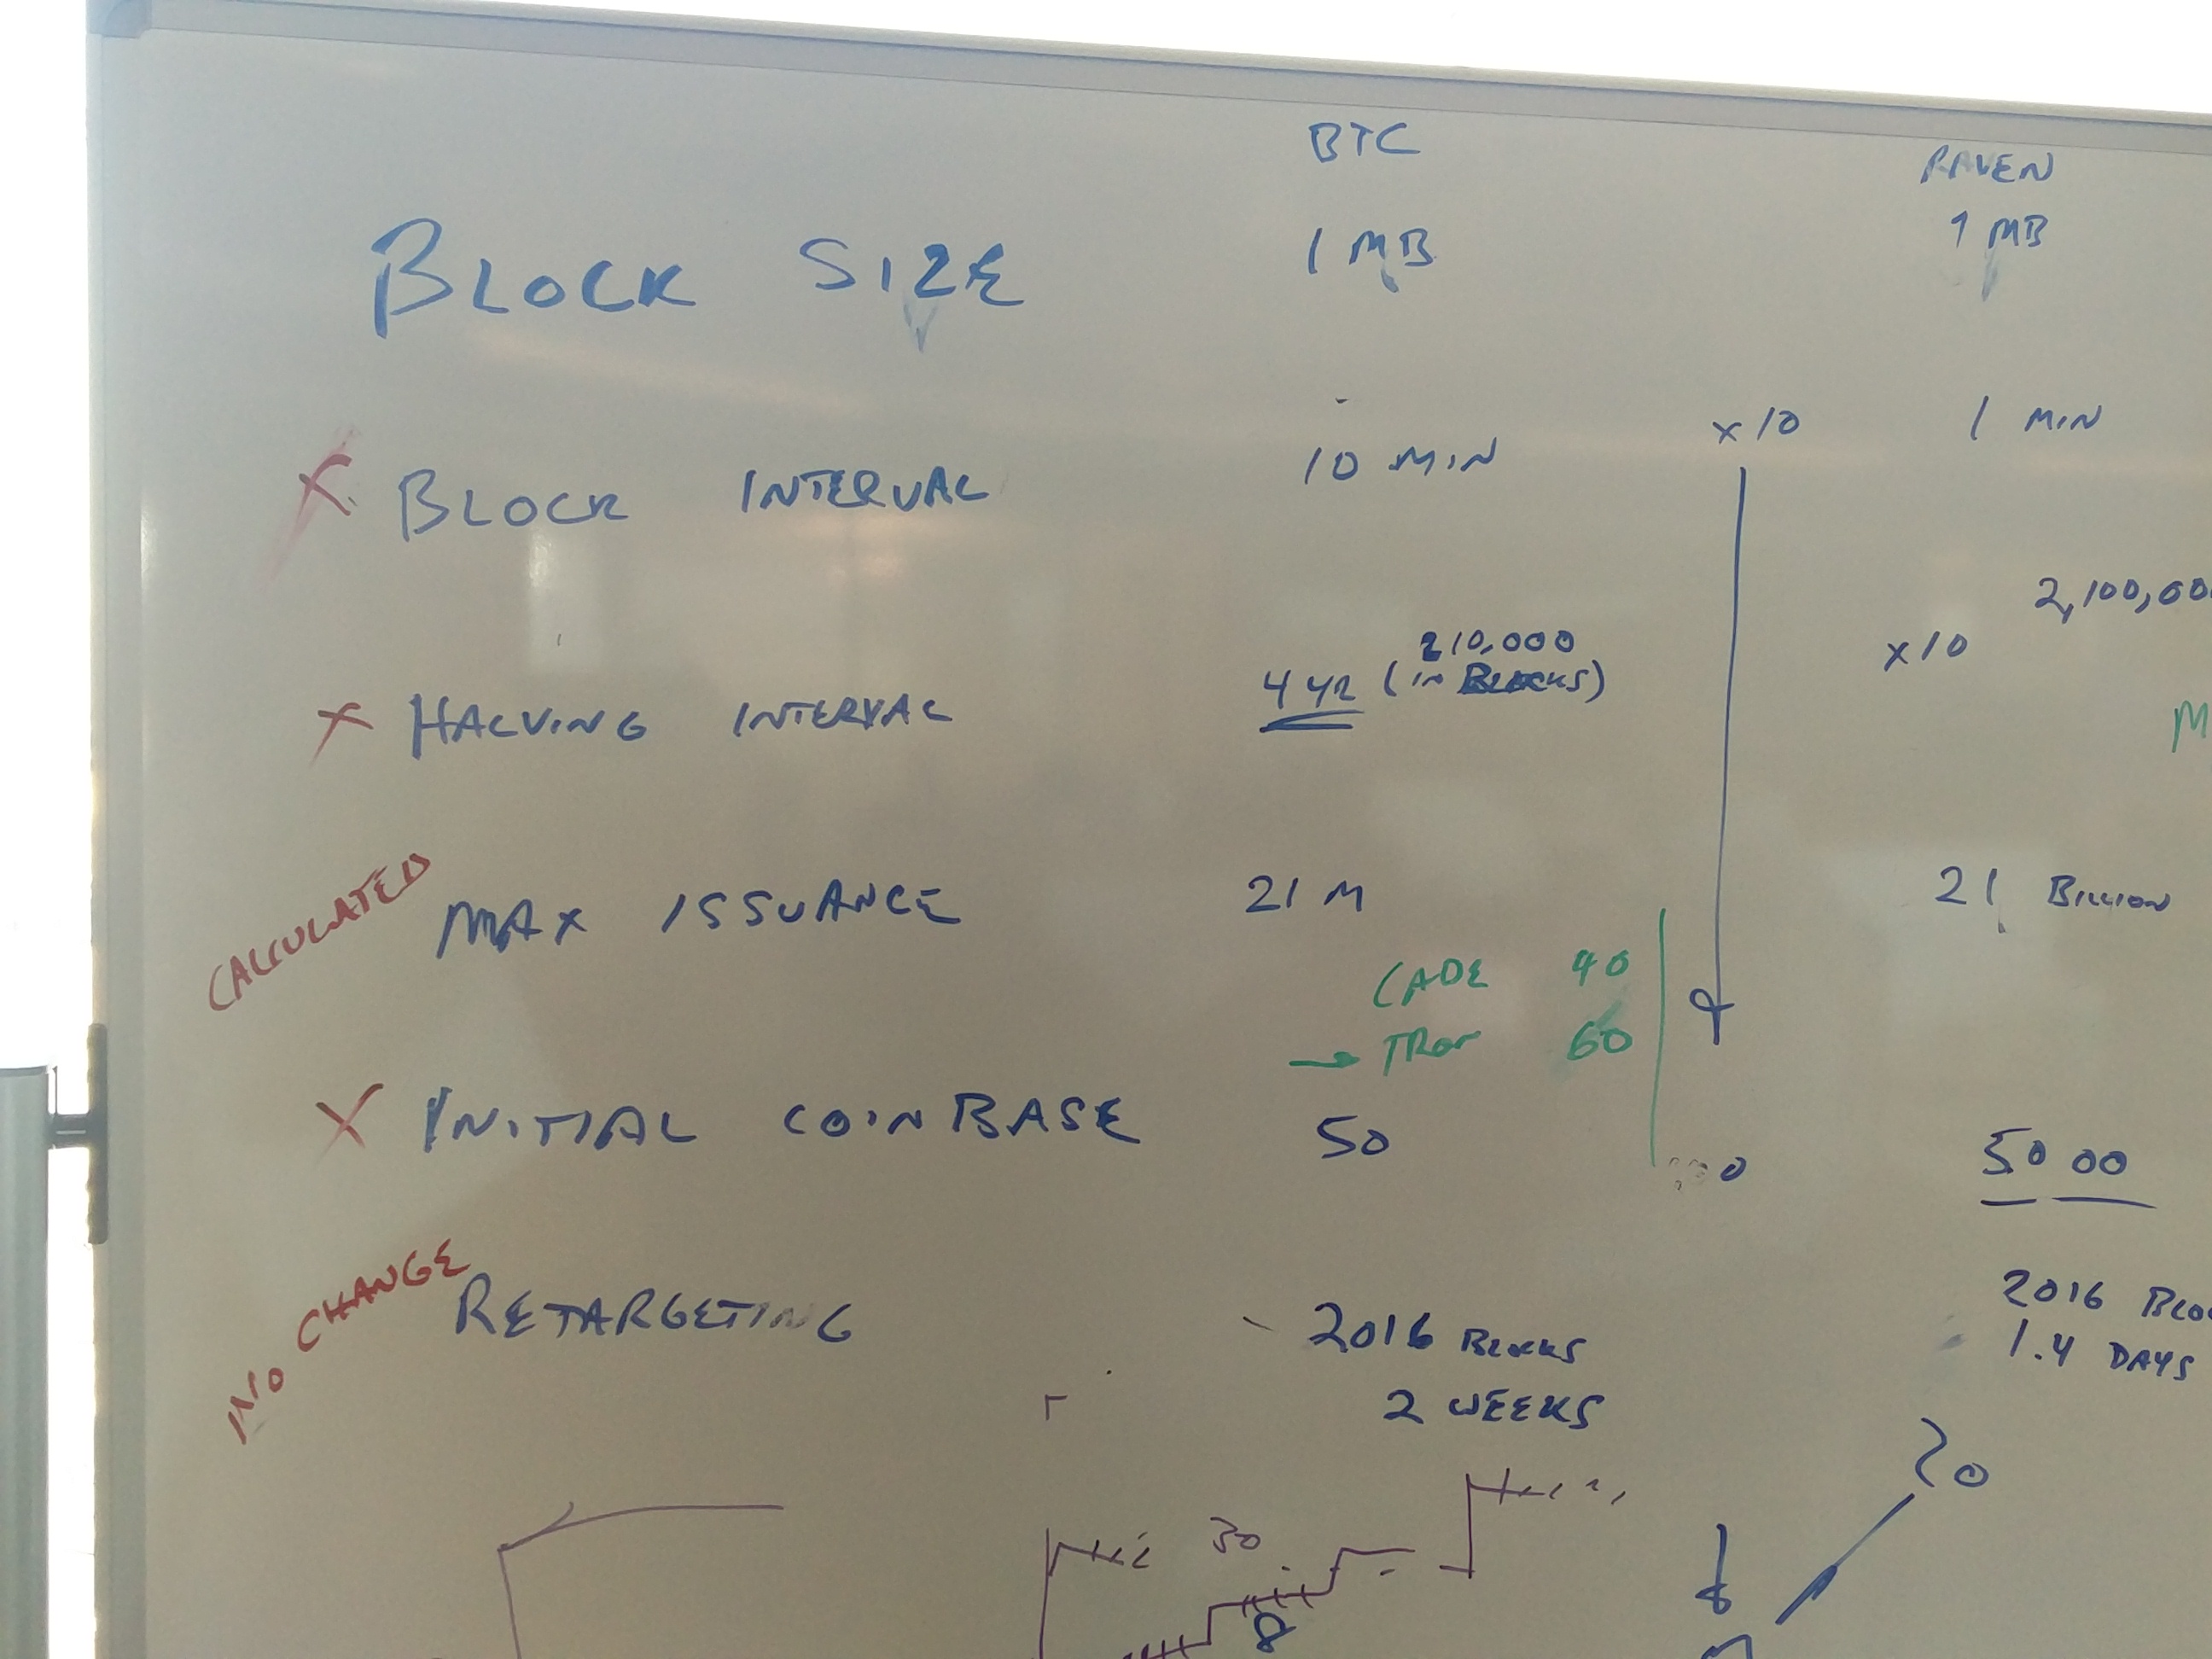 BTC RAVEN
BLOCK SIZE 1 MB 1 MB
X BLOCK INTERVAL 10 MIN x10 1 MIN
210,000 2,100,00
X HALVING INTERVAL 4 YR (IN BLOCKS) x10
M
CALCULATED MAX ISSUANCE 21 M 21 BILLION
CADE 40
→ 60
X INITIAL COINBASE 50 0 5000
NO CHANGE RETARGETING 2016 BLOCKS 2016 BLO
2 WEEKS 1.4 DAYS
30 20
8